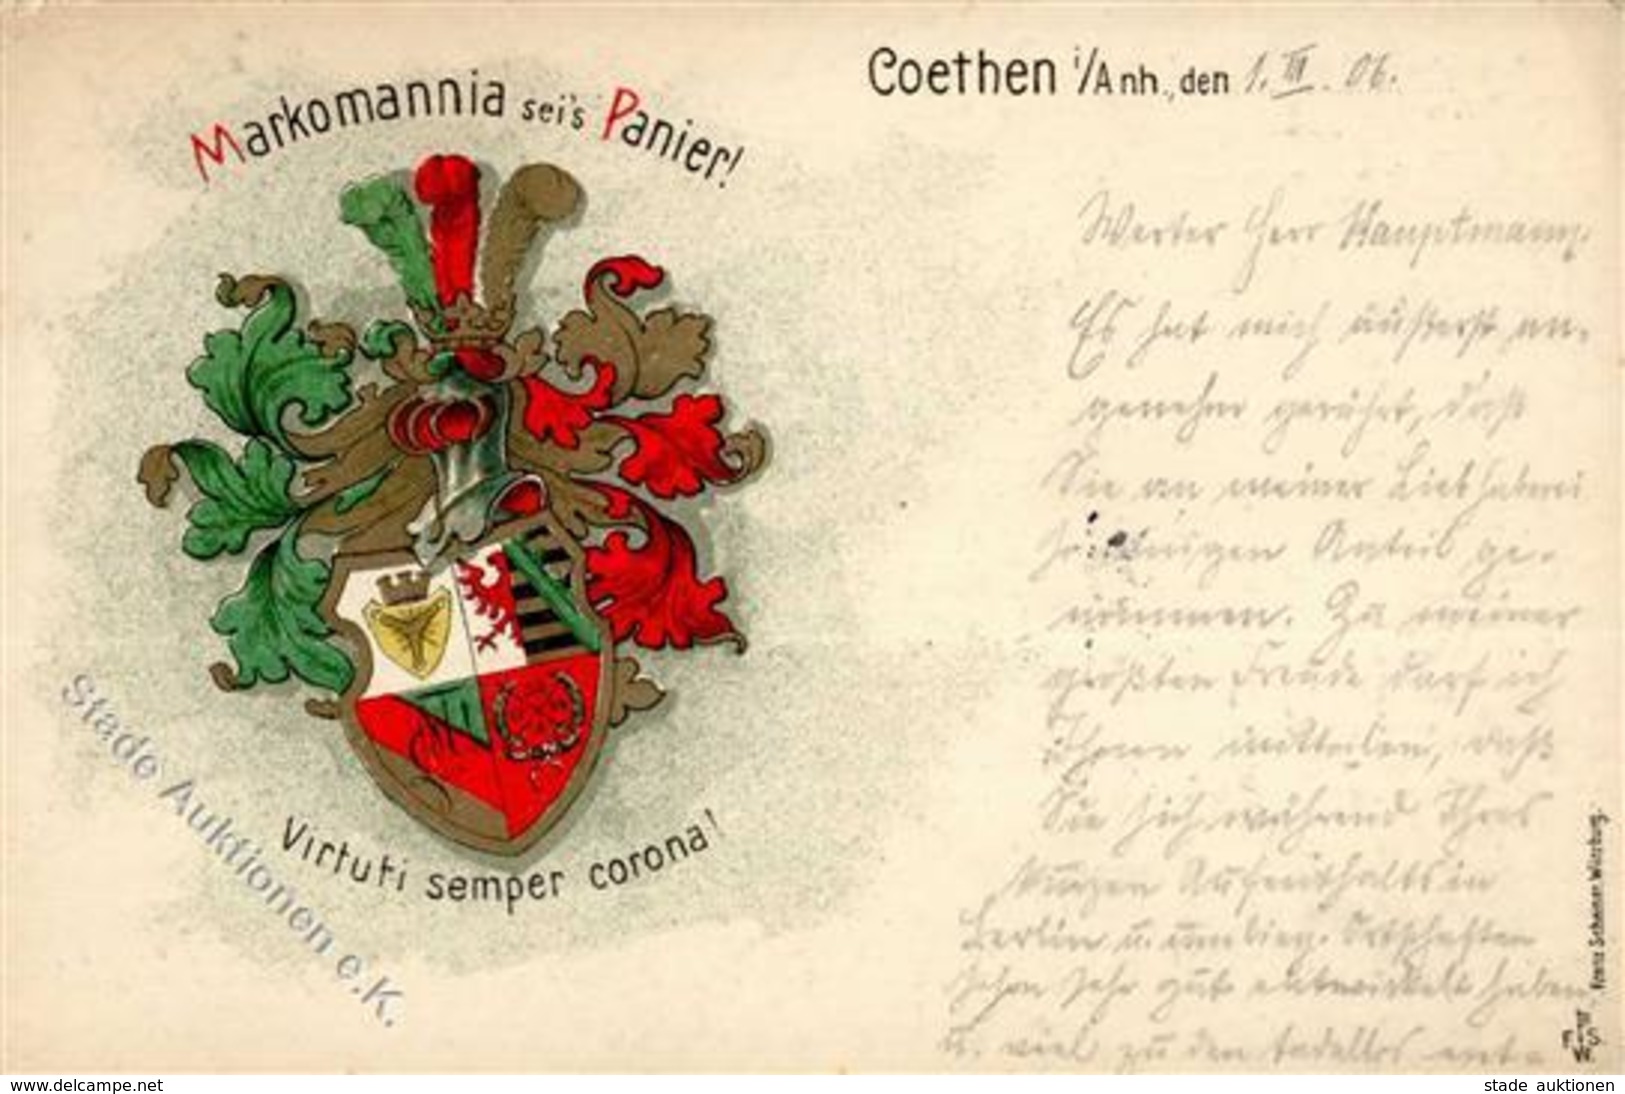 Markomannia sei's Panier!
Coethen i/Anh., den 1. III. 06.
Werter Herr Hauptmann.
Es hat mich äußerst an-
genehm gerührt, daß
Sie an meiner Liebhaberei
Anteil ge-
nommen. Zu meiner
größten Freude darf ich
Ihnen mitteilen, daß
Sie sich während Ihres
kurzen Aufenthalts in
Berlin u. umlieg. Ortschaften
schon sehr gut entwickelt haben
u. viel zu den tadellos ent-
Virtuti semper corona!
Stade Auktionen e.K.
Franz Scheiner, Würzburg.
www.delcampe.net
stade auktionen